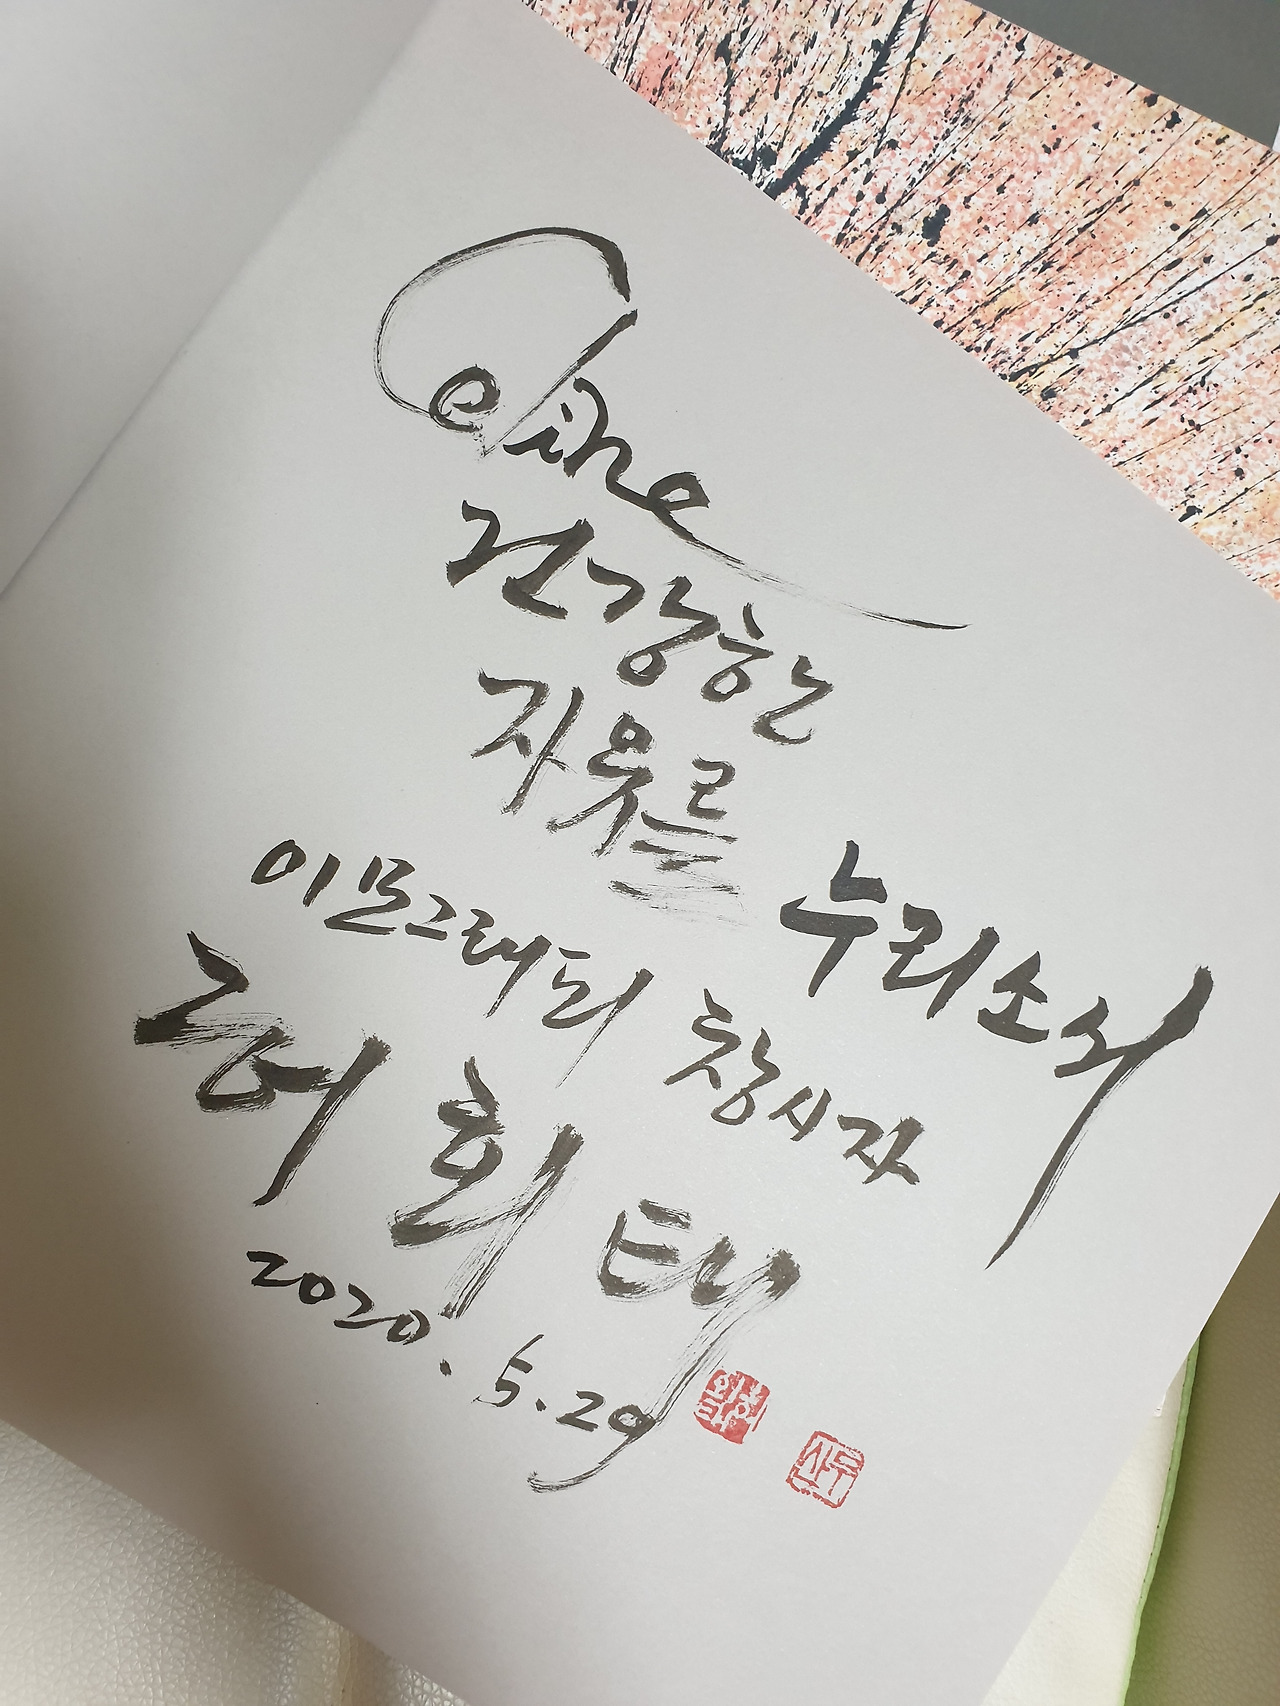 Celine
건강한
자유를 누리소서
이모그래피 창시자
허회태
2020.5.29
허회태
무산